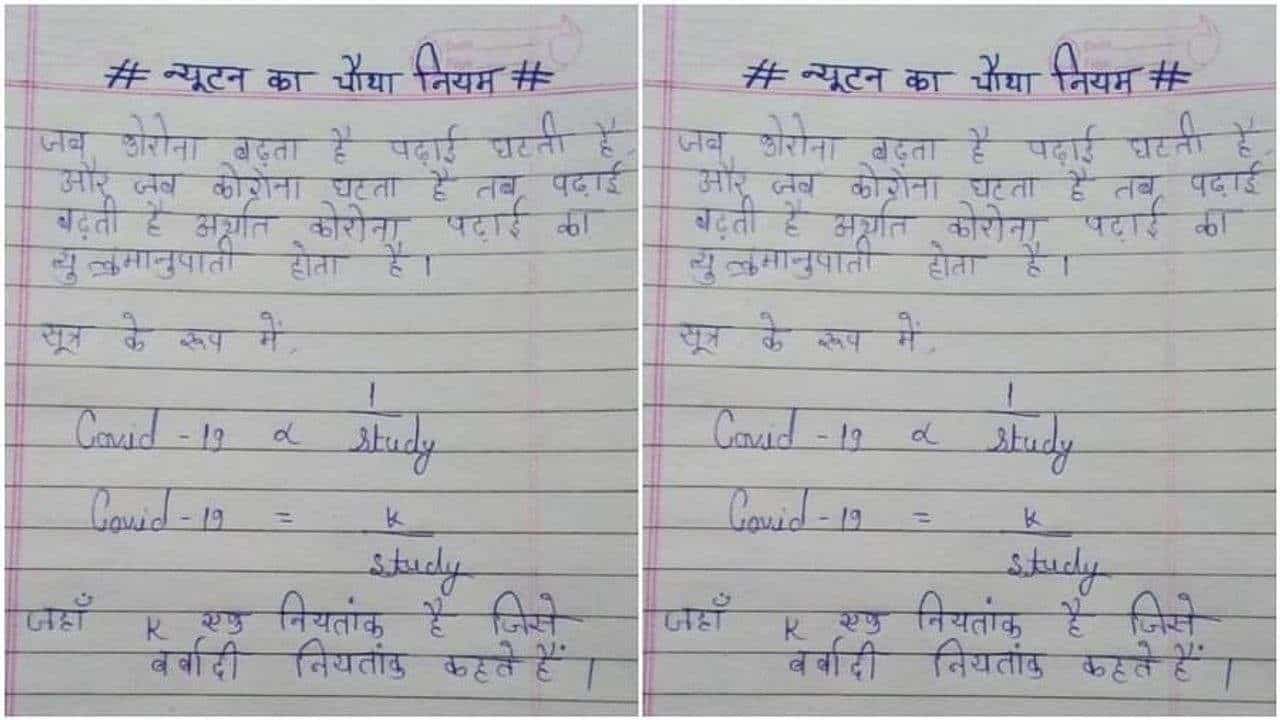 # न्यूटन का चौथा नियम #
जब कोरोना बढ़ता है पढ़ाई घटती है,
और जब कोरोना घटता है तब पढ़ाई
बढ़ती है अर्थात कोरोना पढ़ाई का
व्युत्क्रमानुपाती होता है।
सूत्र के रूप में,
Covid-19 ∝ 1/study
Covid-19 = K/study
जहाँ K एक नियतांक है जिसे
बर्बादी नियतांक कहते हैं।
# न्यूटन का चौथा नियम #
जब कोरोना बढ़ता है पढ़ाई घटती है,
और जब कोरोना घटता है तब पढ़ाई
बढ़ती है अर्थात कोरोना पढ़ाई का
व्युत्क्रमानुपाती होता है।
सूत्र के रूप में,
Covid-19 ∝ 1/study
Covid-19 = K/study
जहाँ K एक नियतांक है जिसे
बर्बादी नियतांक कहते हैं।